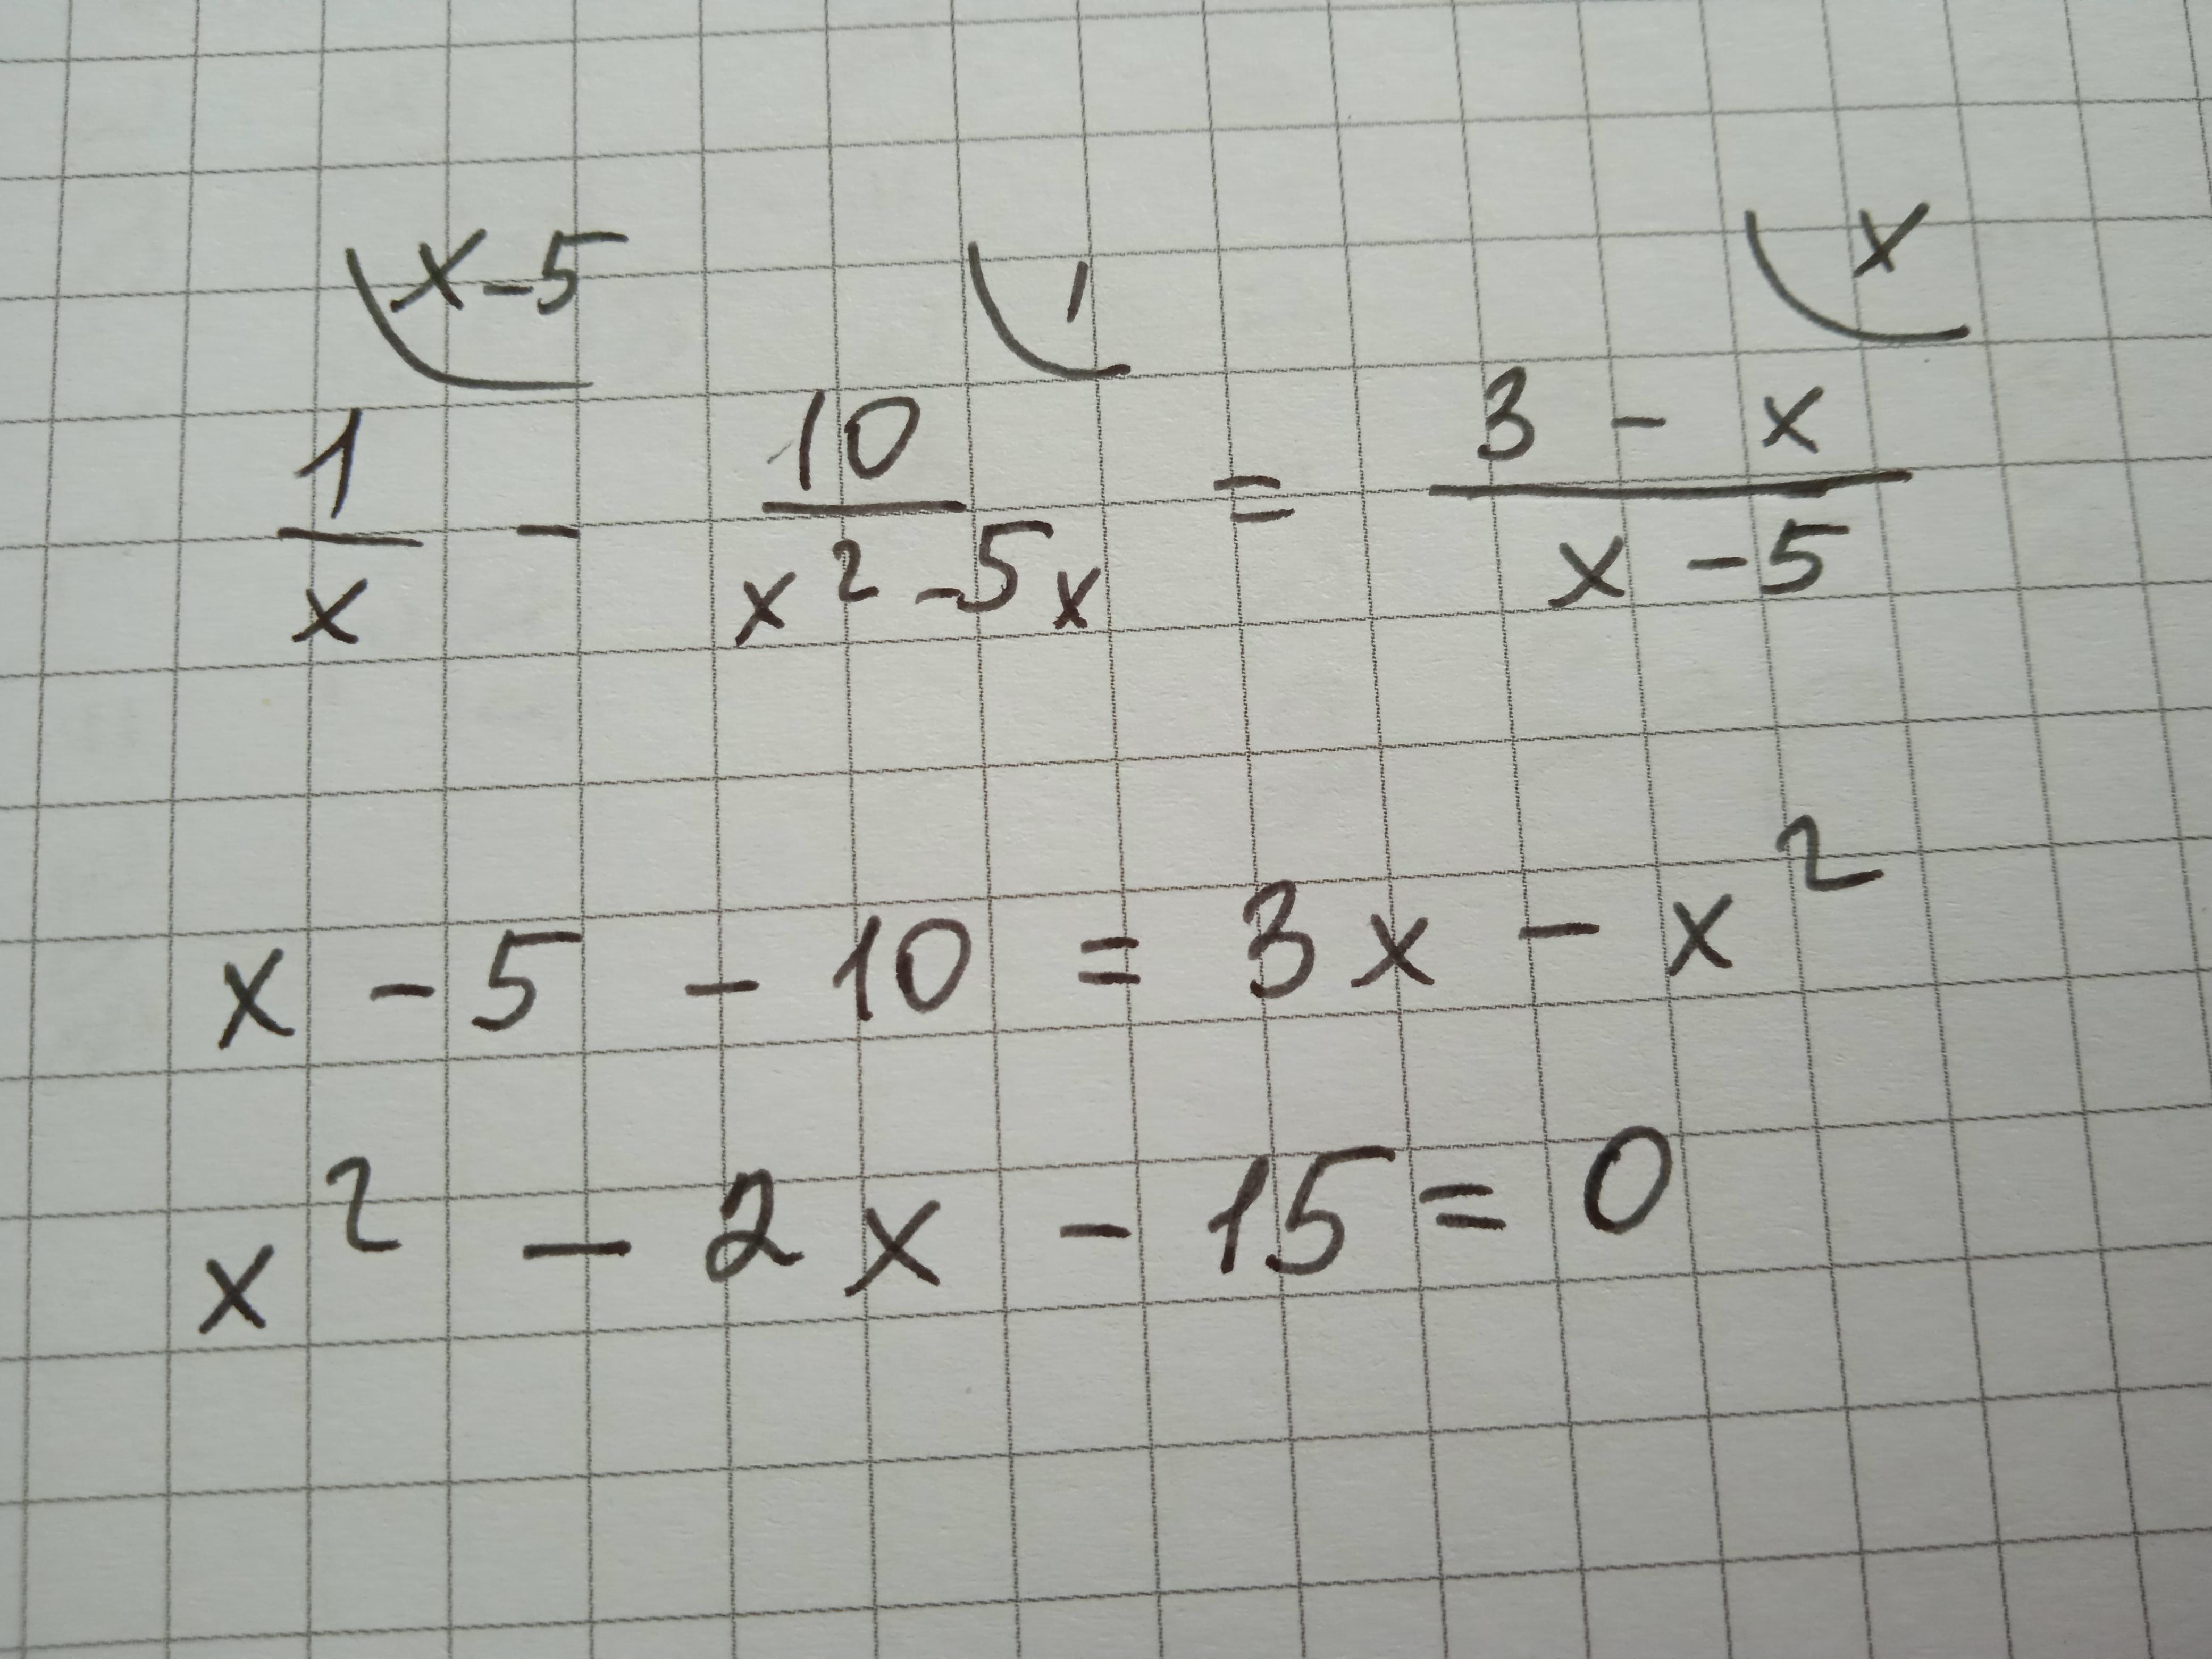 x-5 1 x
1/x - 10/(x²-5x) = (3 - x)/(x-5)
x - 5 - 10 = 3x - x²
x² - 2x - 15 = 0